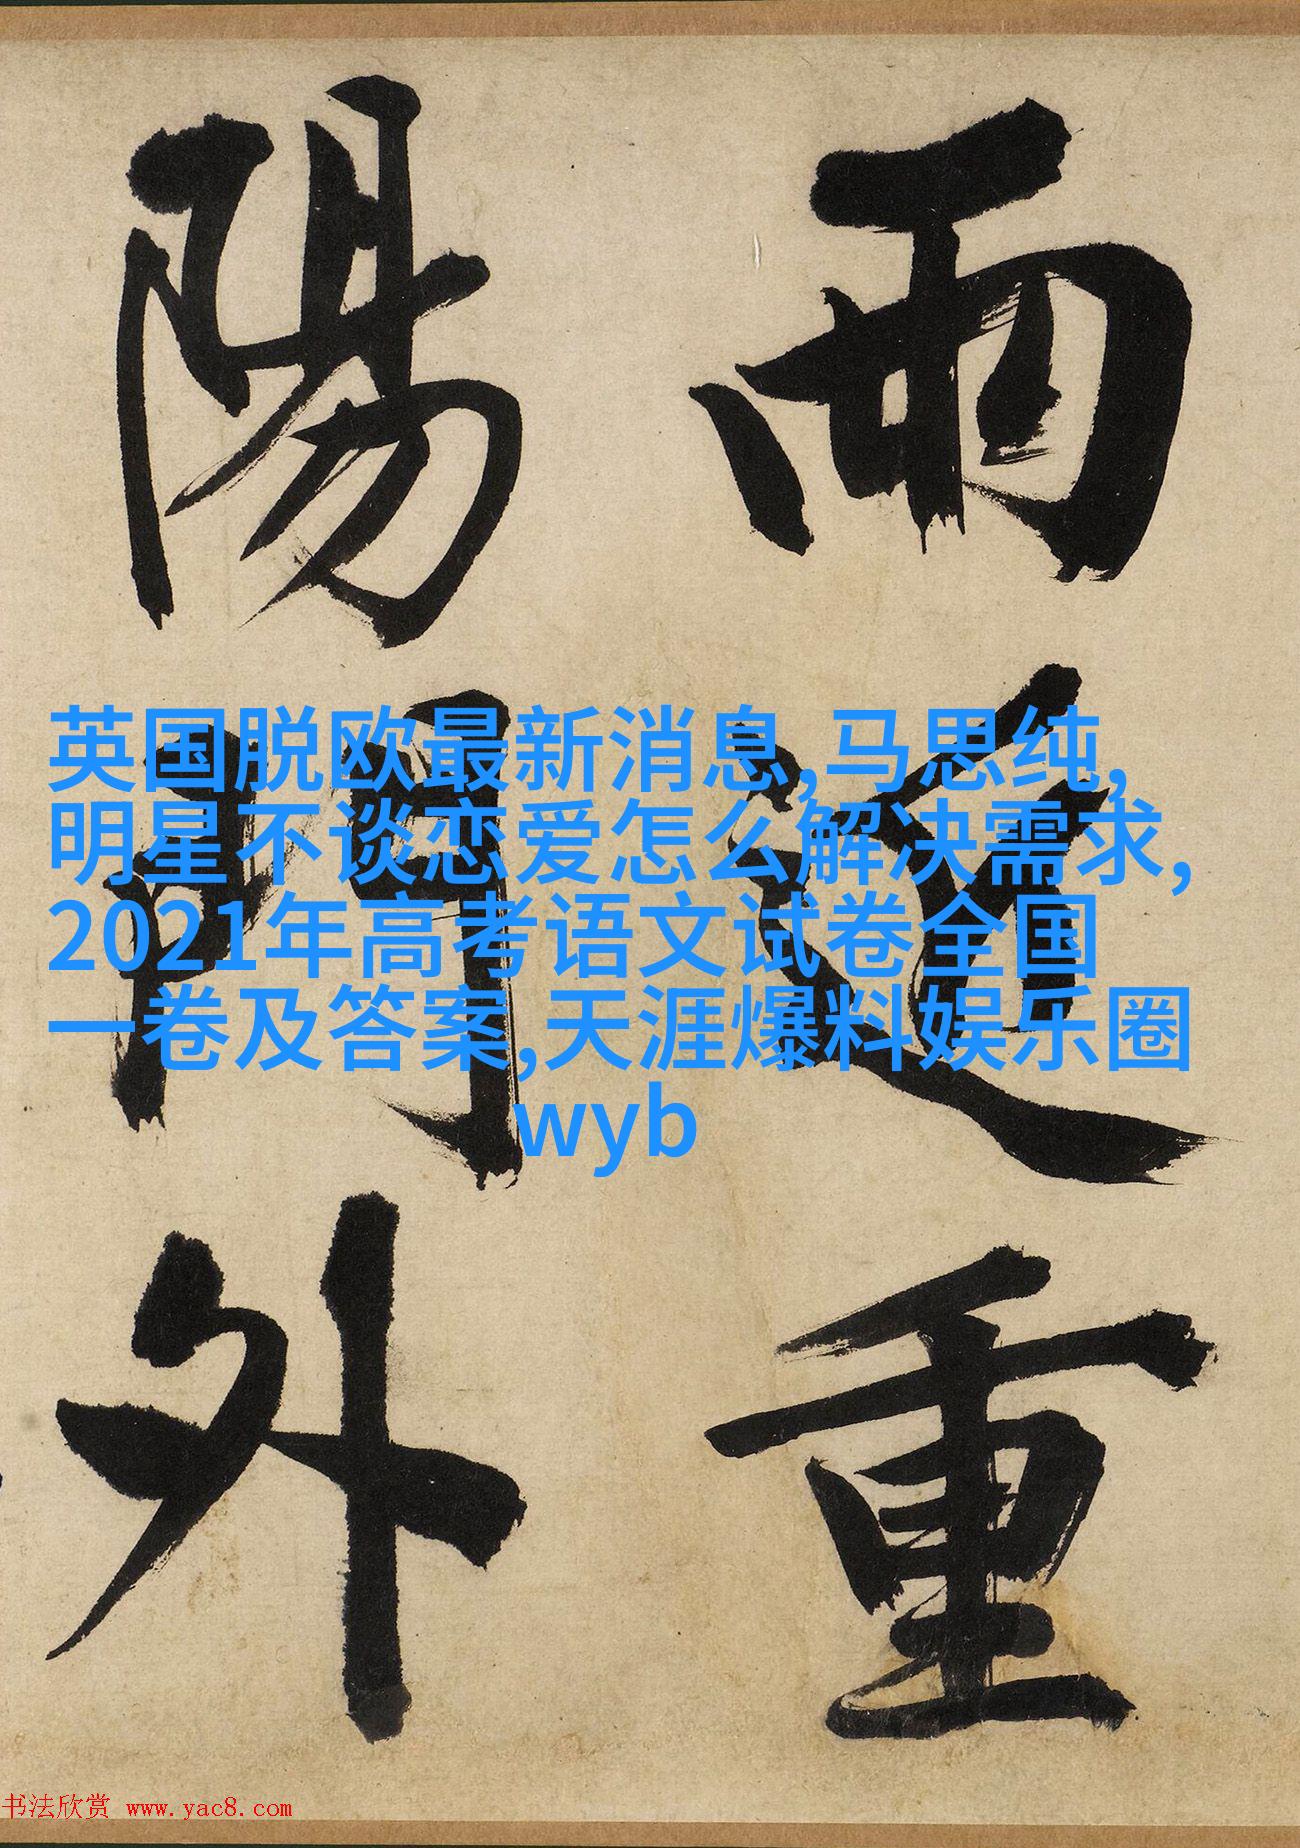 雨近重
陽門外
英国脱欧最新消息,马思纯,
明星不谈恋爱怎么解决需求,
2021年高考语文试卷全国
一卷及答案,天涯爆料娱乐圈
wyb
书法欣赏 www.yac8.com